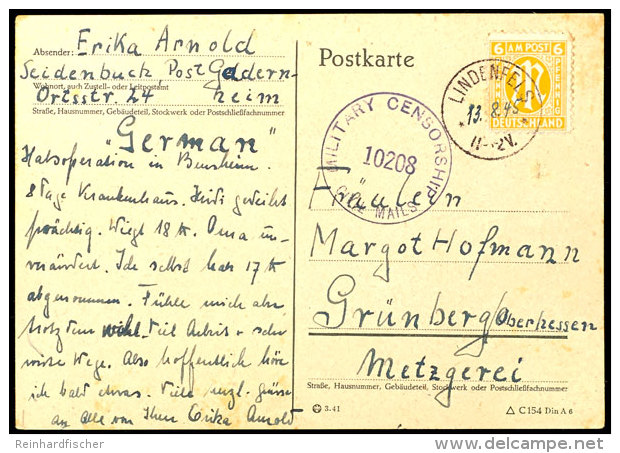 Absender: Erika Arnold
Seidenbuch, Post Gadern-
Wohnort, auch Zustell- oder Leitpostamt
heim
Ortsstr. 24
Straße, Hausnummer, Gebäudeteil, Stockwerk oder Postschließfachnummer
"German"
Halsoperation in Bensheim.
8 Tage Krankenhaus. Heidi gedeiht
prächtig. Wiegt 18 ℔. Oma un-
verändert. Ich selbst hab 17 ℔
abgenommen. Fühle mich aber
trotzdem wohl. Viel Arbeit u. sehr
weite Wege. Also hoffentlich höre
ich bald etwas. Viele herzl. Grüsse
an alle von Ihrer Erika Arnold
Postkarte
MILITARY CENSORSHIP
10208
CIVIL MAILS
LINDENFELS
13.8.45
11-12V.
6 AM POST 6
PFENNIG
DEUTSCHLAND
Fräulein
Margot Hofmann
Grünberg/Oberhessen
Metzgerei
Straße, Hausnummer, Gebäudeteil, Stockwerk oder Postschließfachnummer
3.41
C 154 Din A 6
Reinhardfischer
delcampe.net